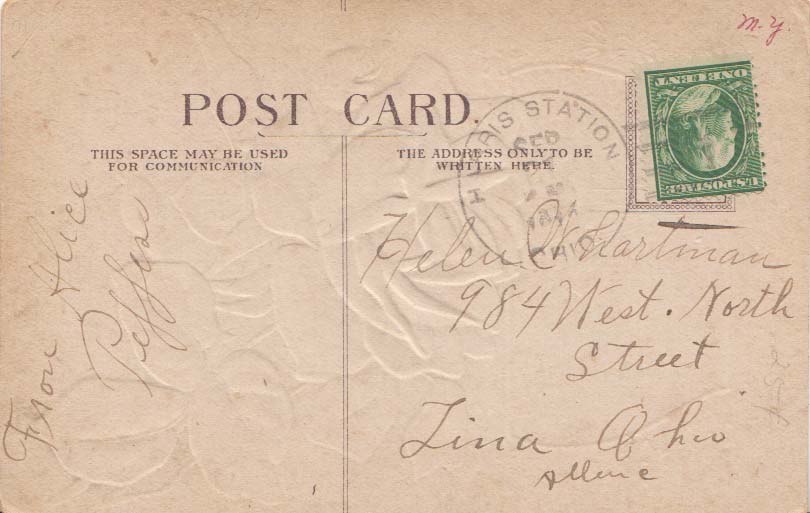 M.Y.
POST CARD.
THIS SPACE MAY BE USED
FOR COMMUNICATION
THE ADDRESS ONLY TO BE
WRITTEN HERE.
HARRIS STATION
SEP
OHIO
ONE CENT
U.S. POSTAGE
From Alice
Helen Hartman
984 West. North
Street
Lina Ohio